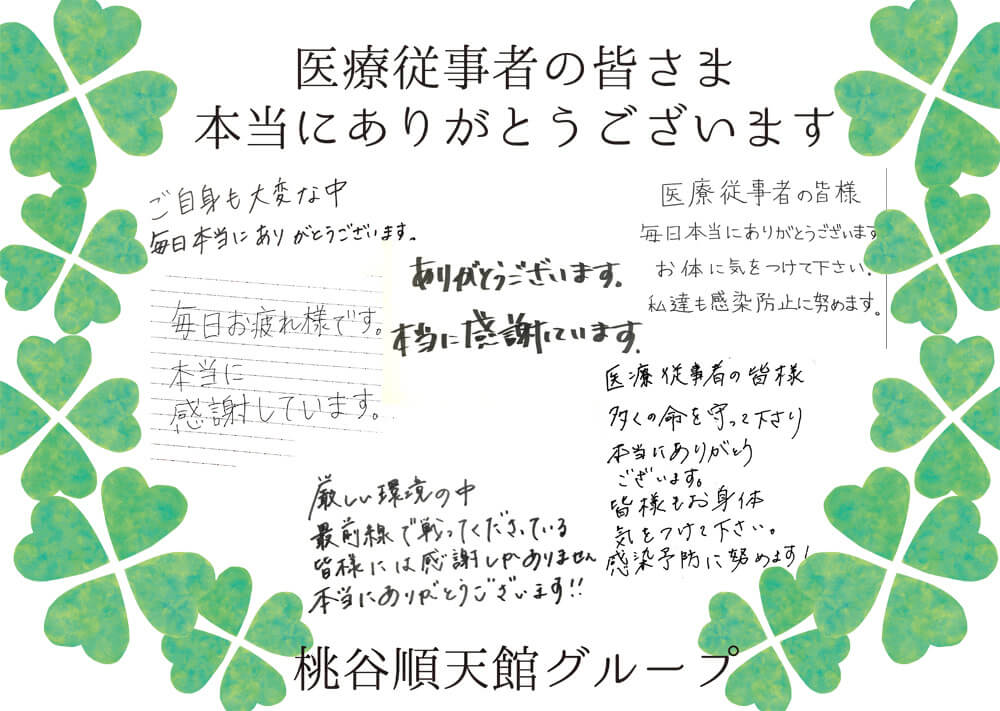 医療従事者の皆さま
本当にありがとうございます
ご自身も大変な中
毎日本当にありがとうございます。
医療従事者の皆様
毎日本当にありがとうございます
お体に気をつけて下さい。
私達も感染防止に努めます。
ありがとうございます。
本当に感謝しています。
毎日お疲れ様です。
本当に
感謝しています。
医療従事者の皆様
多くの命を守って下さり
本当にありがとう
ございます。
皆様もお身体
気をつけて下さい。
感染予防に努めます!
厳しい環境の中
最前線で戦ってくださっている
皆様には感謝しかありません
本当にありがとうございます!!
桃谷順天館グループ